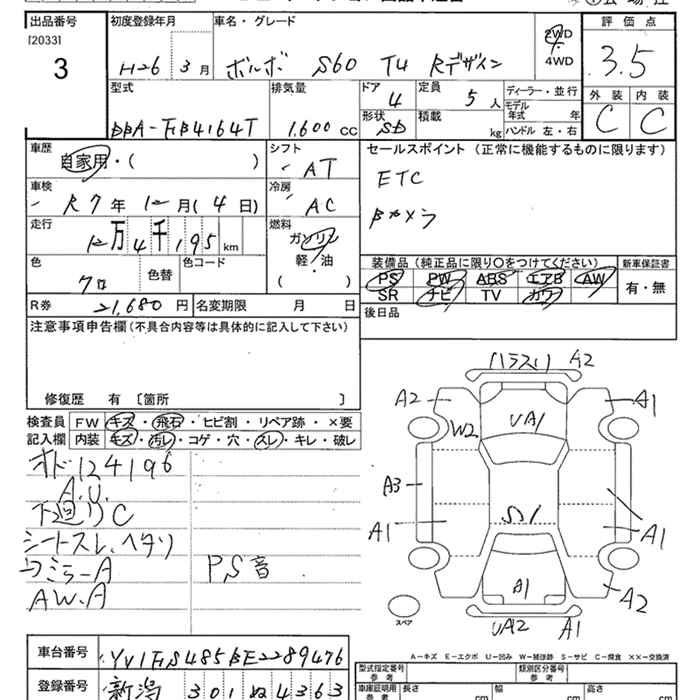 出品番号 初度登録年月 車名・グレード 評価点
[2033] 3 H26 3月 ボルボ S60 T4 Rデザイン 2WD 4WD 3.5
型式 排気量 ドア 4 定員 5人 ディーラー・並行 外装 内装
DBA-FB4164T 1.600cc 形状 SD 積載 kg モデル年式 年 C C
ハンドル 左・右
車歴 自家用・( ) シフト AT セールスポイント(正常に機能するものに限ります)
車検 R7年12月(4日) 冷房 AC ETC
Bカメラ
走行 12万4千195km 燃料 ガソリン 軽・油 ( )
色 クロ 色替 色コード 装備品(純正品に限り○をつけてください) 新車保証書
PS PW ABS エアB AW 有・無
SR ナビ TV カワ
R券 21,680円 名変期限 月 日 後日品
注意事項申告欄(不具合内容等は具体的に記入して下さい)
修復歴 有 [箇所 ]
検査員記入欄 FW キズ・飛石・ヒビ割・リペア跡・×要
内装 キズ・汚レ・コゲ・穴・スレ・キレ・破レ
オド124196
A.U.
下廻りC
シートスレ、ヘタリ
ミラーA PS音
AW.A
A2
A2 A1
W2 UA1
A3
A1 S1 A1
A1 A2
スペア UA2 A1
A-キズ E-エクボ U-凹み W-補修跡 S-サビ C-腐食 ××-交換済
車台番号 YV1FS485BE2289476 型式指定番号 参考 類別区分番号 参考
登録番号 新潟 301 ぬ 4363 車庫証明用 参考 長さ cm 幅 cm 高さ cm